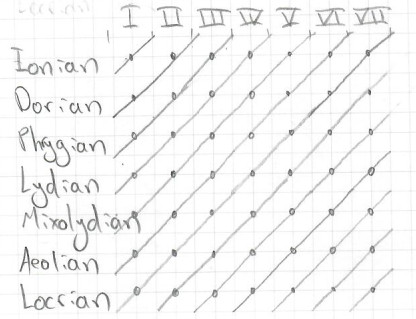 I II III IV V VI VII
Ionian
Dorian
Phrygian
Lydian
Mixolydian
Aeolian
Locrian